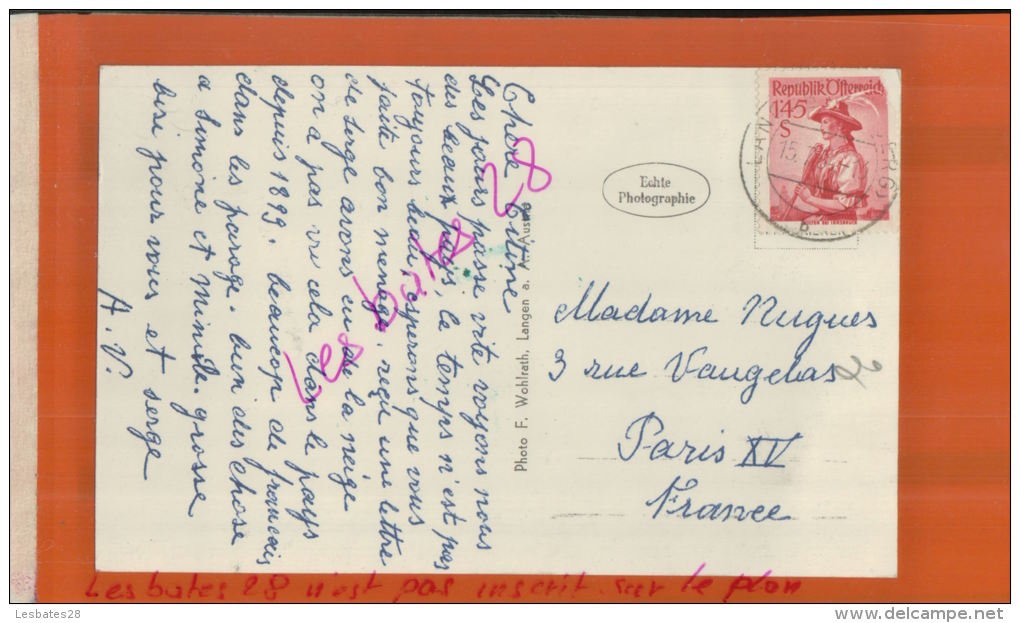 Chère Titine
Les jours passe vite voyons nous
des beaux pays, le temps n'est pas
toujours beau, esperons que vous
faite bon menage. reçu une lettre
de serge avons eu de la neige
on a pas vu cela dans le pays
depuis 1899. beaucop de francais
dans les parage. bien des chose
a Simone et Mimile. grosse
bisi pour vous et serge
A. V.
les bates 28
Photo F. Wohlrath, Langen a. A. Austria
Echte
Photographie
Republik Österreich
1'45
S
Madame Nugues
3 rue Vaugelas
Paris XV
France
Les bates 28 n'est pas inscrit sur le plan
Lesbates28
www.delcampe.net